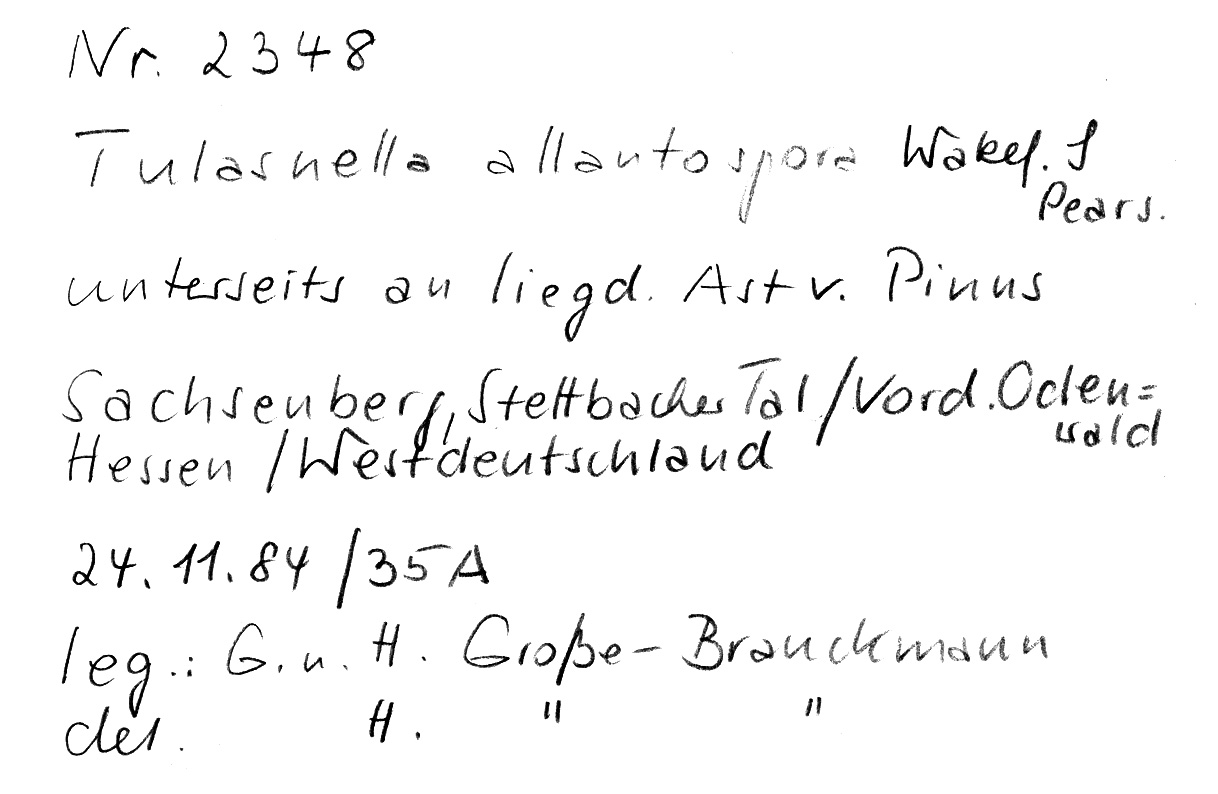 Nr. 2348
Tulasnella allantospora Wakef. &
Pears.
unterseits an liegd. Ast v. Pinus
Sachsenberg, Stettbacher Tal / Vord. Oden=
wald
Hessen / Westdeutschland
24. 11. 84 / 35A
leg.: G. u. H. Große-Brauckmann
det. H. " "